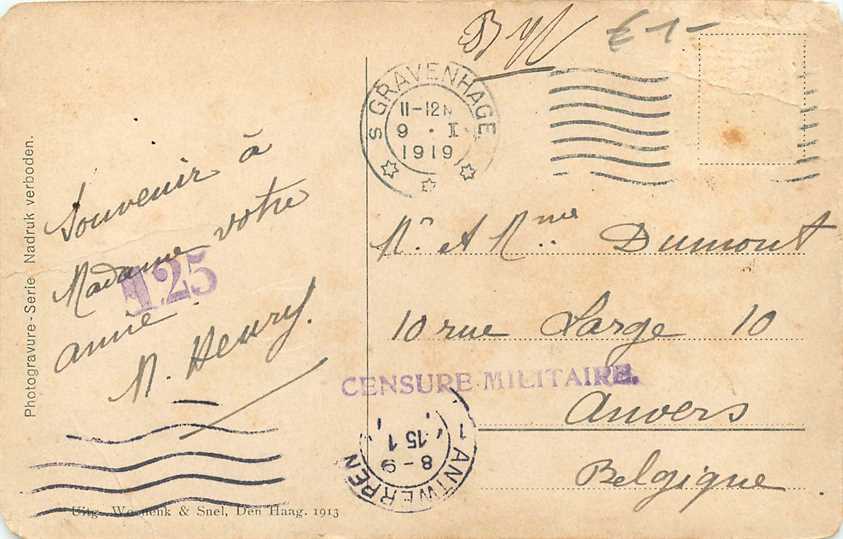 Photogravure-Serie Nadruk verboden.
Souvenir à
Madame votre
amie.
M. Henry.
125
Uitg. Weenenk & Snel, Den Haag. 1913
€ 1-
s GRAVENHAGE
11-12N
9 · I
1919
Mr et Mme Dumont
10 rue Large 10
CENSURE MILITAIRE.
Anvers
Belgique
1 ANTWERPEN
15 1
8-9